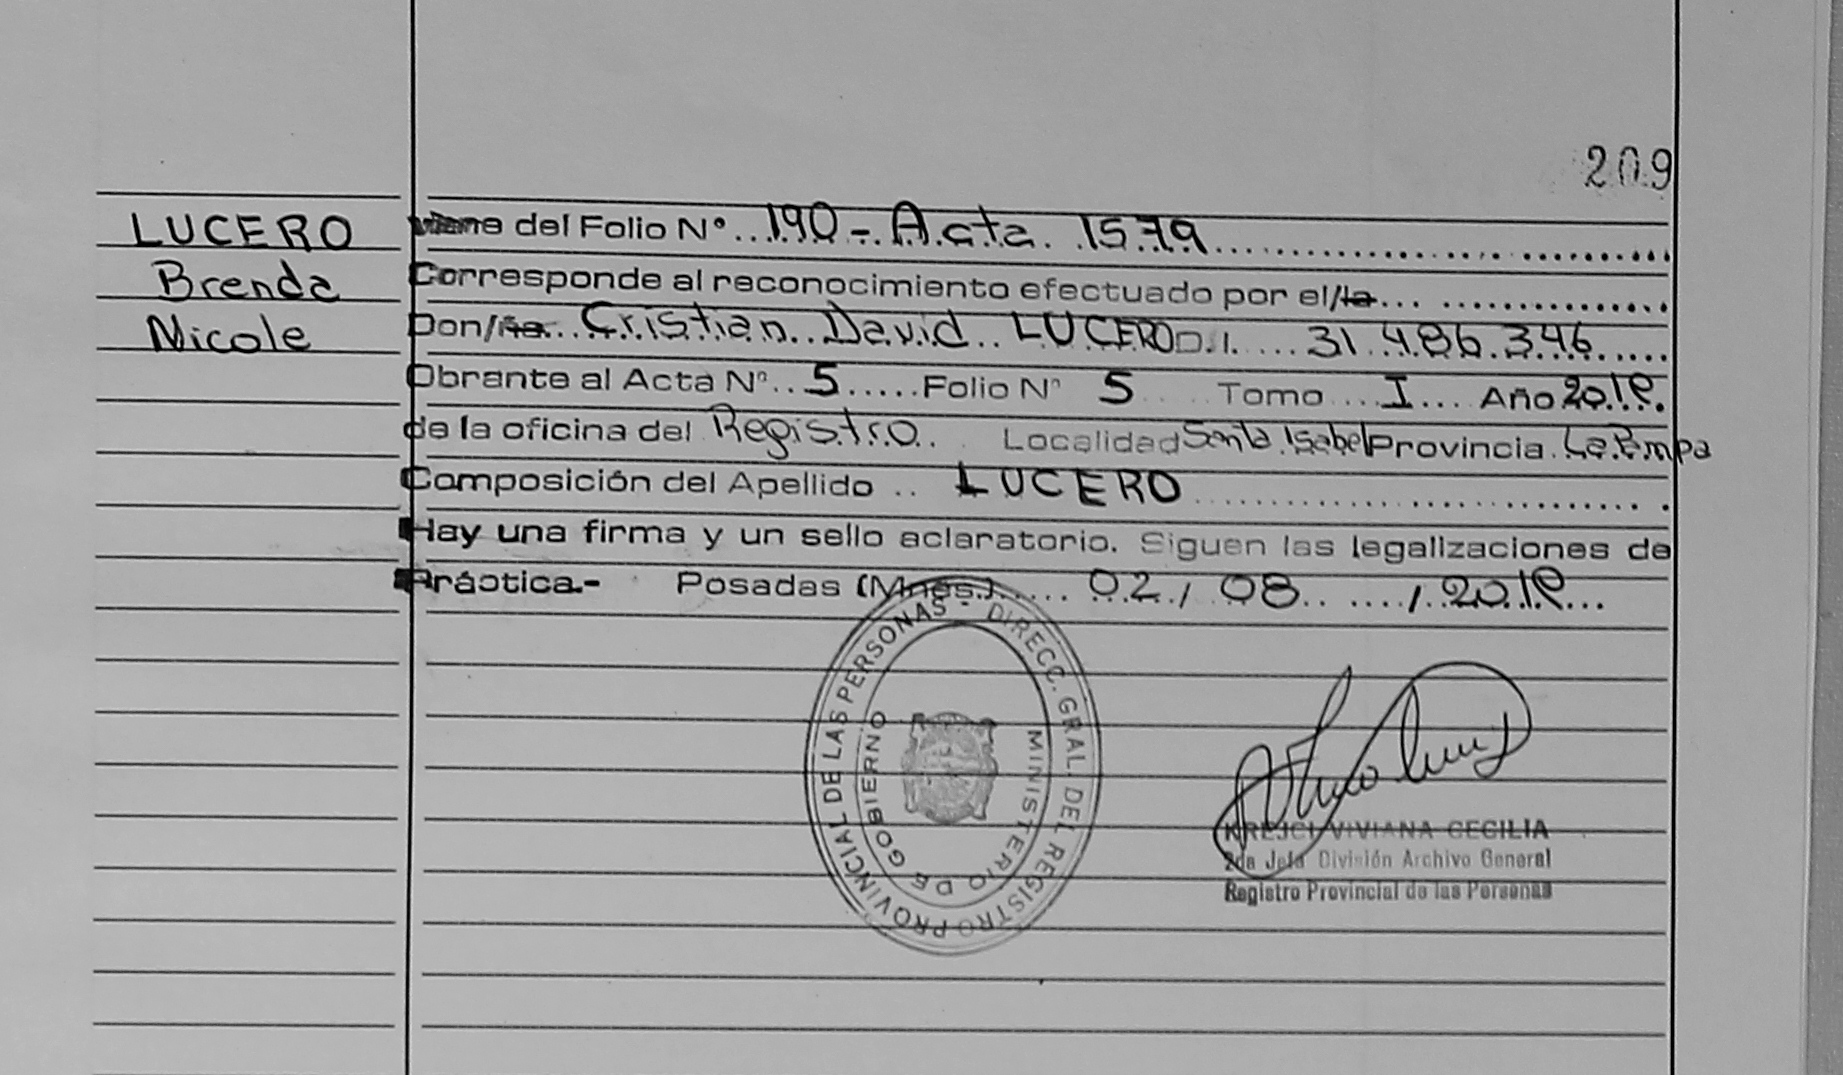 209
LUCERO
Brenda
Nicole
Viene del Folio Nº ..190.- Acta. 1579....................
Corresponde al reconocimiento efectuado por el/la... ..............
Don/ña... Cristian.. David.. LUCERO D.I..... 31.486.346.....
Obrante al Acta Nº...5.....Folio Nº 5 .... Tomo ....I... Año
de la oficina del Registro.. . Localidad Santa Isabel Provincia. La Pampa
Composición del Apellido .. LUCERO..............................
Hay una firma y un sello aclaratorio. Siguen las legalizaciones de
Práctica.- Posadas (Mnes.)..... 02./ 08.. ..../.
DIRECC. GRAL. DEL REGISTRO PROVINCIAL DE LAS PERSONAS -
MINISTERIO DE GOBIERNO
KREJCI VIVIANA CECILIA
2da Jefa División Archivo General
Registro Provincial de las Personas